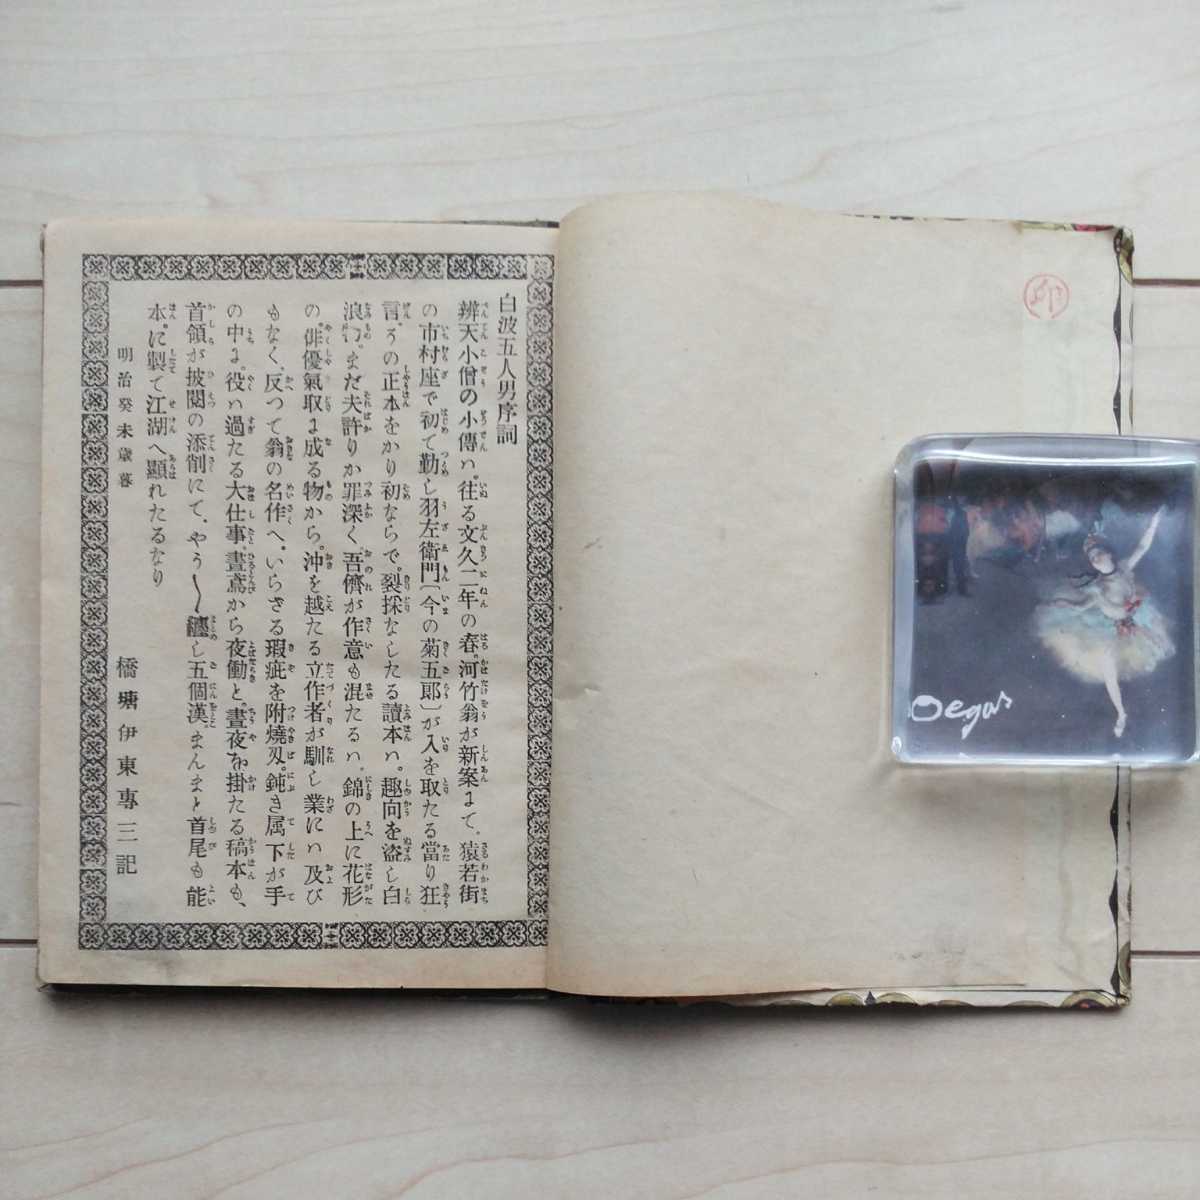 白波五人男序詞
辨天小僧の小傳ハ。往る文久二年の春。河竹翁が新案まて。猿若街
の市村座で初て勤し羽左衛門〔今の菊五郎〕が入を取たる當り狂
言。うの正本をかり初ならで。裂採なしたる讀本ハ。趣向を盗し白
浪の。まだ夫許りか罪深く、吾儕が作意も混たるハ。錦の上に花形
の。俳優氣取ま成る物から。沖を越たる立作者が馴し業にハ及び
もなく、反つて翁の名作へ。いらざる瑕疵を附燒刄。鈍き属下が手
の中ま。役ハ過たる大仕事。晝鳶から夜働と。晝夜を掛たる稿本も、
首領が披閲の添削にて、やう〱纏し五個漢。まんまと首尾も能
本。に製て江湖へ顯れたるなり
明治癸未歳暮
橋塘伊東專三記
Degas